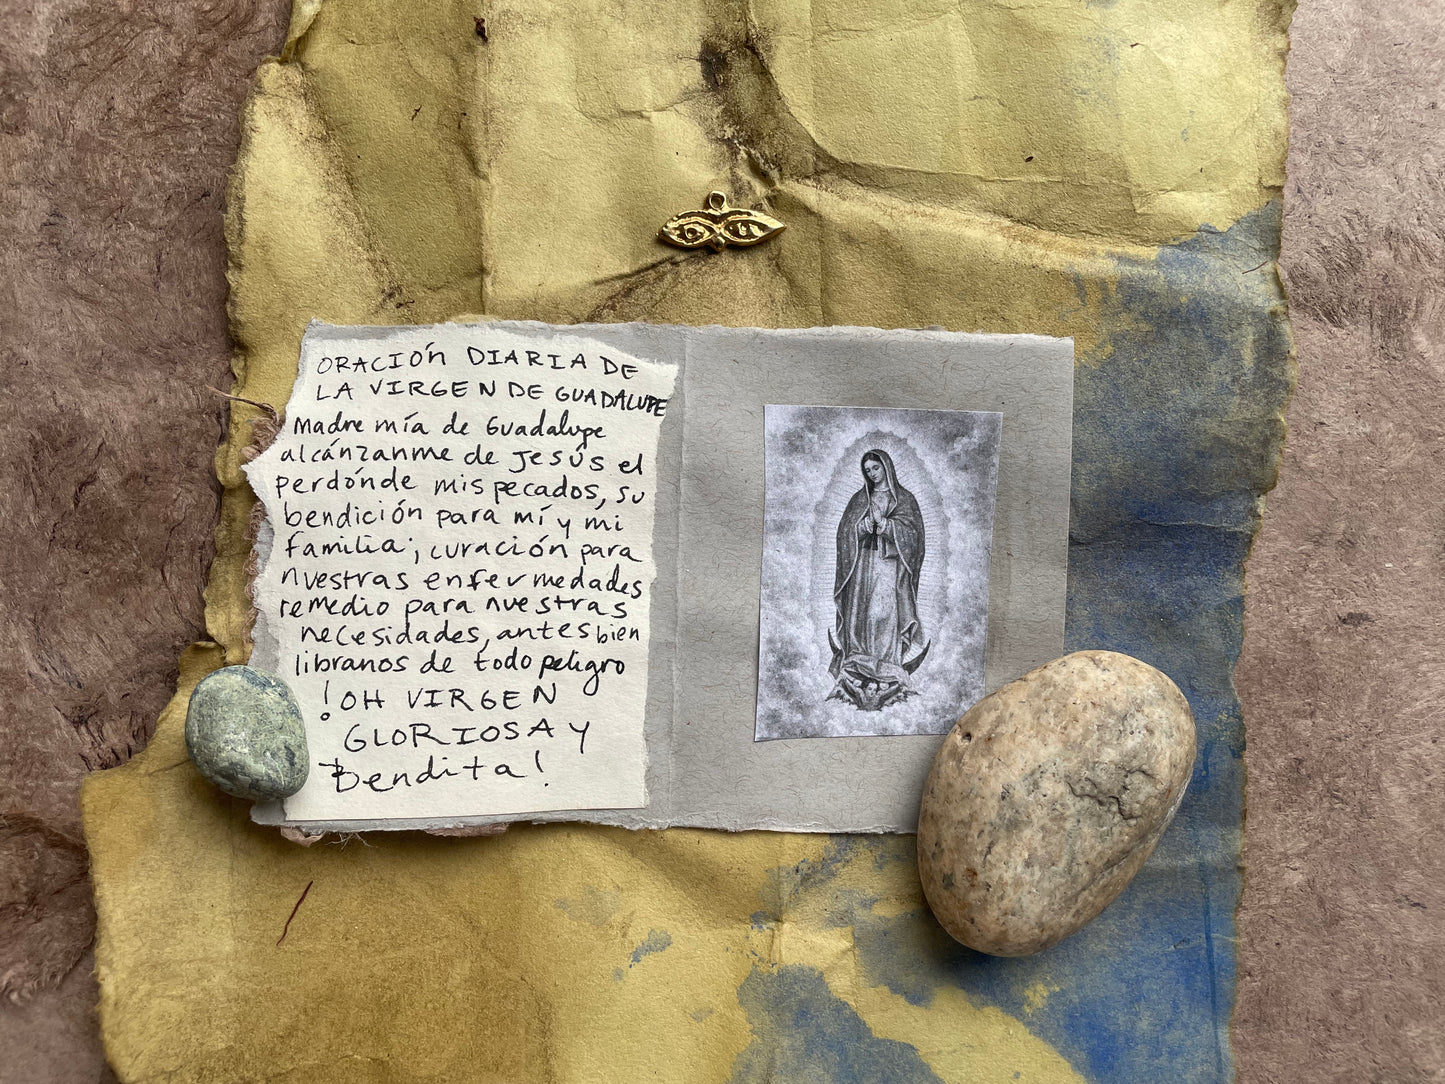 ORACIÓN DIARIA DE
LA VIRGEN DE GUADALUPE
Madre mía de Guadalupe
alcánzanme de Jesús el
perdónde mis pecados, su
bendición para mí y mi
familia; curación para
nuestras enfermedades
remedio para nuestras
necesidades, antes bien
libranos de todo peligro
¡OH VIRGEN
GLORIOSA Y
Bendita!